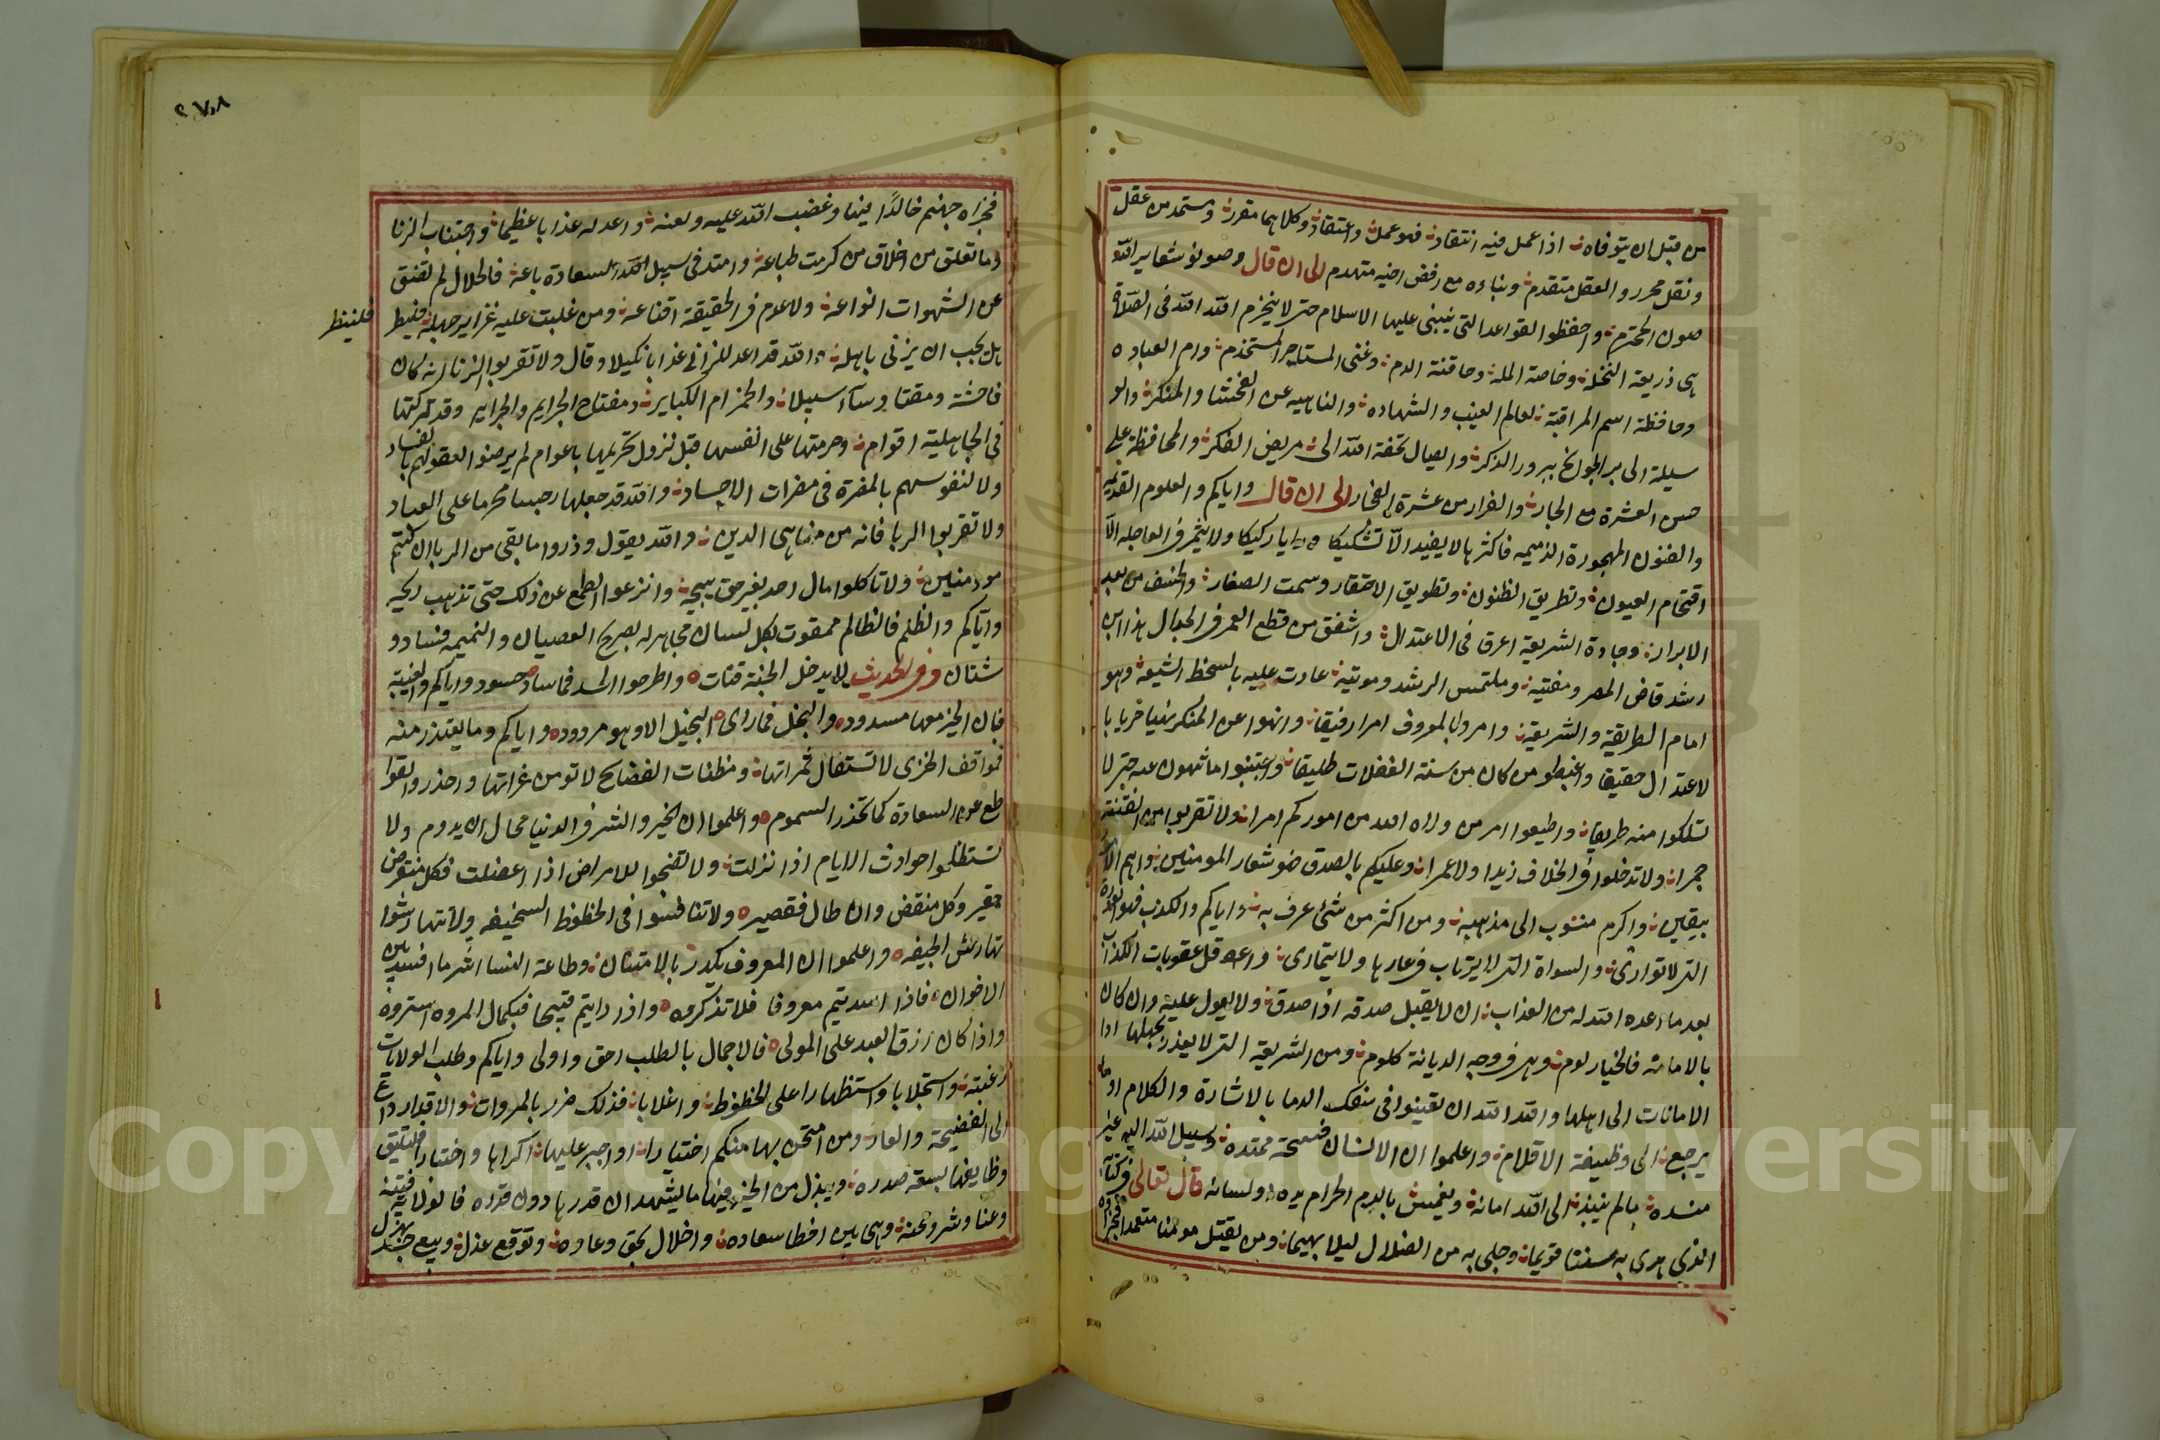 من قبل ان يتوفاه اذا عمل فيه انتقاد فهو عمل واعتقاد وكلاهما مقرر ومستمد من عقل
ونقل محرر والعقل متقدم وبناءه مع رفض اخيه متهدم الى ان قال وصونوا شعاير الله
صون المحترم واحفظوا القواعد التي ينبني عليها الاسلام حتى لا ينخرم الله الله في الصلاة
هي ذريعة التخلة وخاصة الملة وحاقنة الدم وغنى المستاجر المستخدم وام العباده
وحافظة اسم المراقبة لعالم الغيب والشهاده والناهيه عن الفحشا والمنكر والو
سيلة الى برالجوانح ببرور الذكر وايصال تحفة الله الى مريض الفكر والمحافظة على
حسن العشرة مع الجار والفرار من عشرة الفخار الى ان قال واياكم والعلوم القديمه
والفنون المهجورة الذميمه فاكثرها لا يفيد الا تشكيكا ورايا ركيكا ولا يثمر في العاجله الا
اقتحام العيون وتطريق الظنون وتطويق الاحتقار وسمت الصغار والخسف من بعد
الابدار وجادة الشريعة اعرق في الاعتدال واشفق من قطع العمر في الجدال هذا ابن
رشد قاض المصر ومفتيه وملتمس الرشد وموتيه عادت عليه بالسخط الشنيعه وهو
امام الطريقة والشريعة وامروا بالمعروف امرا رفيقا وانهوا عن المنكر نهيا حريا با
لاعتدال حقيقا واغبطو من كان من سنة الغفلات طليقا واجتنبوا ما تنهون عنه حتى لا
تسلكوا منه طريقا واطيعوا امر من ولاه الله من اموركم امرا ولا تقربوا من الفتنة
جمرا ولا تدخلوا في الخلاف زيدا ولا عمرا وعليكم بالصدق فهو شعار المومنين واهم الامور
بيقين واكرم منسوب الى مذهبه ومن اكثر من شئ عرف به واياكم والكذب فهو العورة
التي لا توارى والسواة التي لا يرتاب في عارها ولا يتمارى واقل عقوبات الكذاب
بعد ما اعده الله له من العذاب ان لا يقبل صدقه اذا صدق ولا يعول عليه وان كان
بالامانه فالخيار لوم وهي في وجه الديانة كلوم ومن الشريعة التي لا يعذر بجهلها ادا
الامانات الى اهلها والله الله ان تعينوا في سفك الدما بالاشارة والكلام او ما
يرجع الى وظيفة الاقلام واعلموا ان الانسان فسحة ممتدة وسبيل الله اليه غير
منسده ما لم ينبذ الى الله امانه ويغمس بالدم الحرام يده او لسانه قال تعالى في كتابه
الذي هدى به سننا قويما وجلى به من الضلال ليلا بهيما ومن يقتل مومنا متعمدا فجزاوه
٢٧٠٨
فجزاه جهنم خالدًا فيها وغضب الله عليه ولعنه واعد له عذابا عظيما واجتناب الزنا
وما تعلق من اخلاق من كرمت طباعه وامتد في سبيل الله السعادة باعه فالحلال لم تضق
عن الشهوات انواعه ولا عدم في الحقيقة اقناعه ومن غلبت عليه غرايز جهله فلينظر
فلينظر
هل يحب ان يزنى باهله والله قد اعد للزاني عذابا نكيلا وقال ولا تقربوا الزنا انه كان
فاحشة ومقتا وسآء سبيلا والخمر ام الكباير ومفتاح الجرايم والجراير وقد تركتها
في الجاهلية اقوام وحرمتها على انفسها قبل نزول تحريمها باعوام لم يرضوا لعقولهم بالفساد
ولا لنفوسهم بالمضرة في مضرات الاجساد والله قد جعلها رجسا محرما على العباد
ولا تقربوا الربا فانه من مناهي الدين والله يقول وذروا ما بقى من الربا ان كنتم
مومنين ولا تاكلوا مال احد بغير حق يبيحه وانزعوا الطمع عن ذلك حتى تذهب ريحه
واياكم والظلم فالظالم ممقوت بكل لسان مجاهر لله بصريح العصيان والنميمه فساد و
شتات وفي الحديث لا يدخل الجنة قتات واطرحوا الحسد فما ساد حسود واياكم والغيبة
فباب الخير معها مسدود والبخل فما رأى البخيل الا وهو مردود واياكم وما يعتذر منه
فمواقف الخزى لا تستقال عثراتها ومظنات الفضايح لا تومن غراتها واحذروا القوا
طع عن السعادة كما تحذر السموم واعلموا ان الخير والشر في الدنيا محال ان يدوم ولا
تستظلوا حوادث الايام اذا نزلت ولا تضجوا للامراض اذا اعضلت فكل منقرض
حقير وكل منقض وان طال فقصير ولا تنافسوا في الحظوظ السخيفه ولا تتهارشوا
تهارش الجيفه واعلموا ان المعروف يكدر بالامتنان وطاعة النسا اشر ما افسد بين
الاخوان فاذا اسديتم معروفا فلا تذكروه واذا رايتم قبيحا فبكمال المروه استروه
واذا كان رزق العبد على المولى فالاجمال بالطلب احق واولى واياكم وطلب الولايات
رغبة واستجلابا واستظهارا على الحظوظ واغلابا فذلك ضرر بالمروات والاقدار داع
الى الفضيحة والعار ومن امتحن بها منكم اختيارا او اجبر عليها اكراها واختبارا فليتلق
وظايفها بسعة صدره ويبذل من الخير فيها ما يشهد ان قدرها دون قدره فالولاية فتنه
وعنا وشر ومحنة وهي بين اخطا سعاده واخلال بحق وعاده وتوقع عذل وبيع جد بهزل